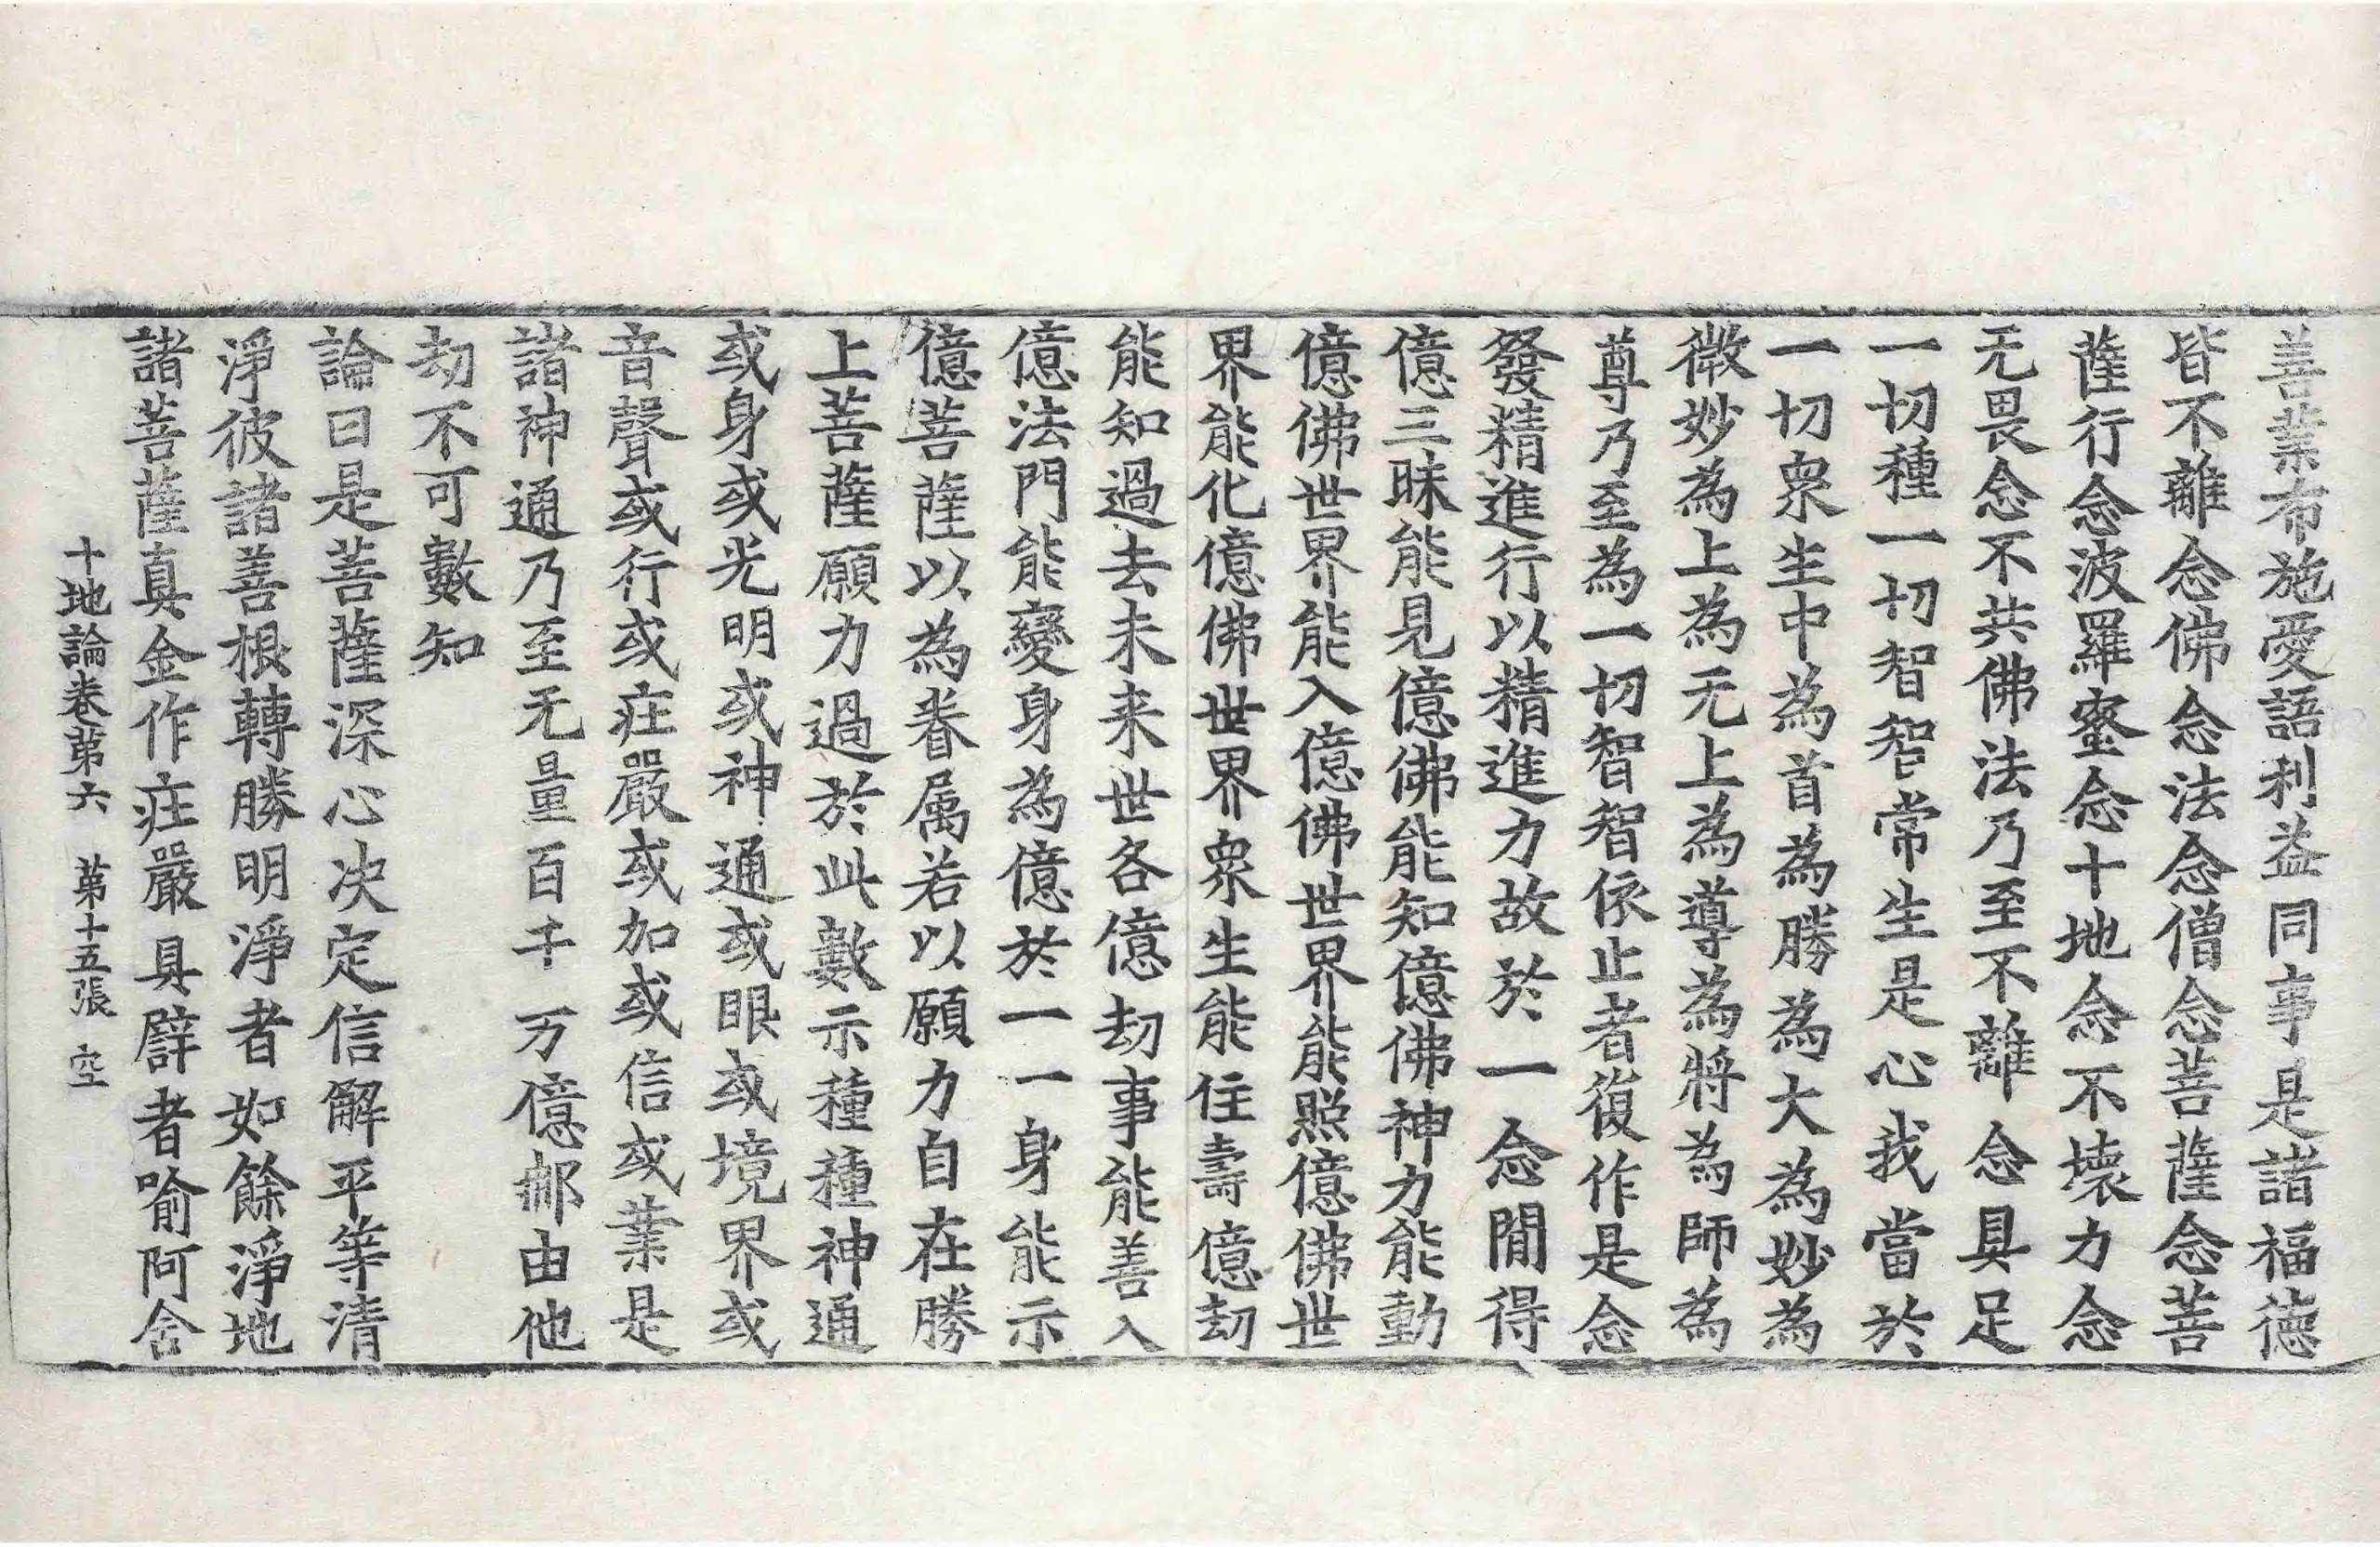 善業布施愛語利益同事是諸福德
皆不離念佛念法念僧念菩薩念菩
薩行念波羅蜜念十地念不壞力念
无畏念不共佛法乃至不離念具足
一切種一切智智常生是心我當於
一切衆生中為首為勝為大為妙為
微妙為上為无上為導為將為師為
尊乃至為一切智智依止者復作是念
發精進行以精進力故於一念閒得
億三昧能見億佛能知億佛神力能動
億佛世界能入億佛世界能照億佛世
界能化億佛世界衆生能住壽億劫
能知過去未来世各億劫事能善入
億法門能變身為億於一一身能示
億菩薩以為眷属若以願力自在勝
上菩薩願力過於此數示種種神通
或身或光明或神通或眼或境界或
音聲或行或疘嚴或加或信或業是
諸神通乃至无量百千万億𨚗由他
劫不可數知
論曰是菩薩深心决定信解平等清
淨彼諸善根轉勝明淨者如餘淨地
諸菩薩真金作疘嚴具譬者喻阿舍
十地論卷第六 第十五張 空